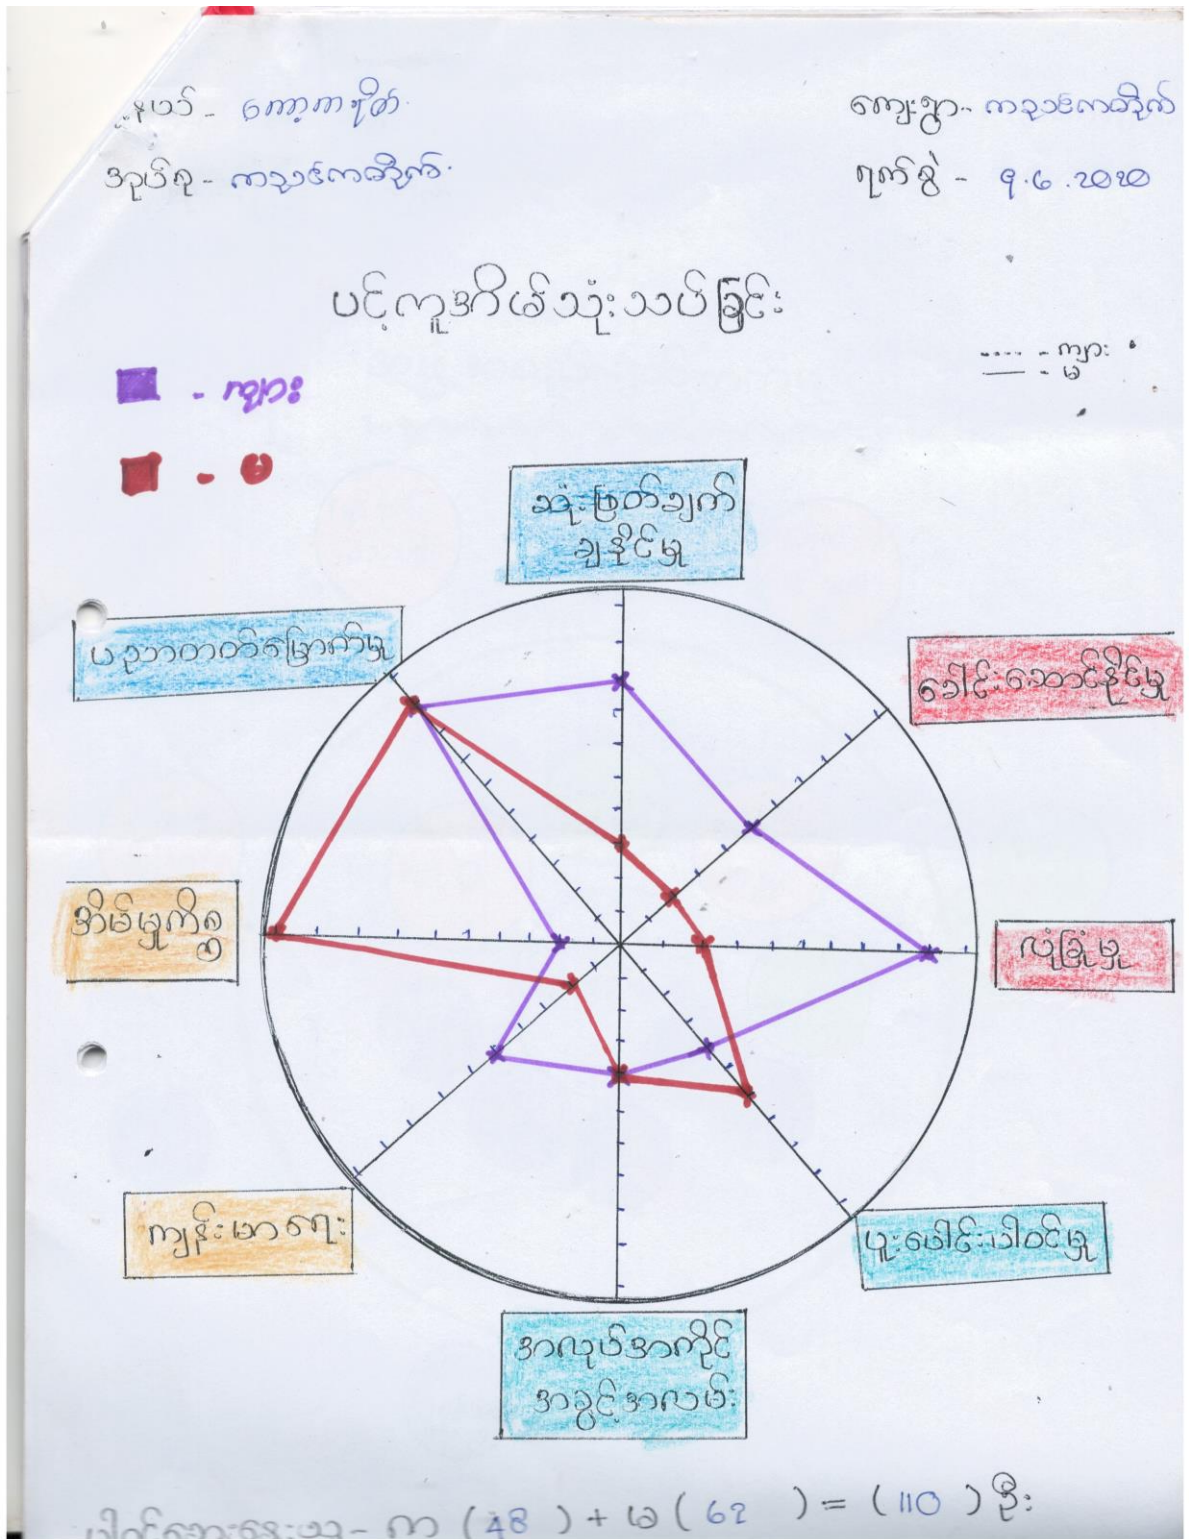 နယ် - ကော့ကရိတ်
ကျေးရွာ - ကညင်ကတိုက်
အုပ်စု - ကညင်ကတိုက်
ရက်စွဲ - ၅.၆.၂၀၂၀
ပင့်ကူအိမ်သုံးသပ်ခြင်း
- ကျား
- မ
- ကျား
- မ
ဆုံးဖြတ်ချက်
ချနိုင်မှု
ပညာတတ်မြောက်မှု
ခေါင်းဆောင်နိုင်မှု
အိမ်မှုကိစ္စ
လုံခြုံမှု
ကျန်းမာရေး
ပူးပေါင်းပါဝင်မှု
အလုပ်အကိုင်
အခွင့်အလမ်း
ပါဝင်ဆွေးနွေးသူ - ကျာ (48) + မ (62) = (110) ဦး